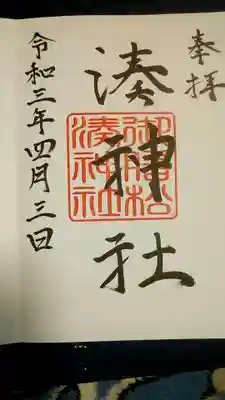 奉拝
湊神社
御唐松
湊神社
令和三年四月三日